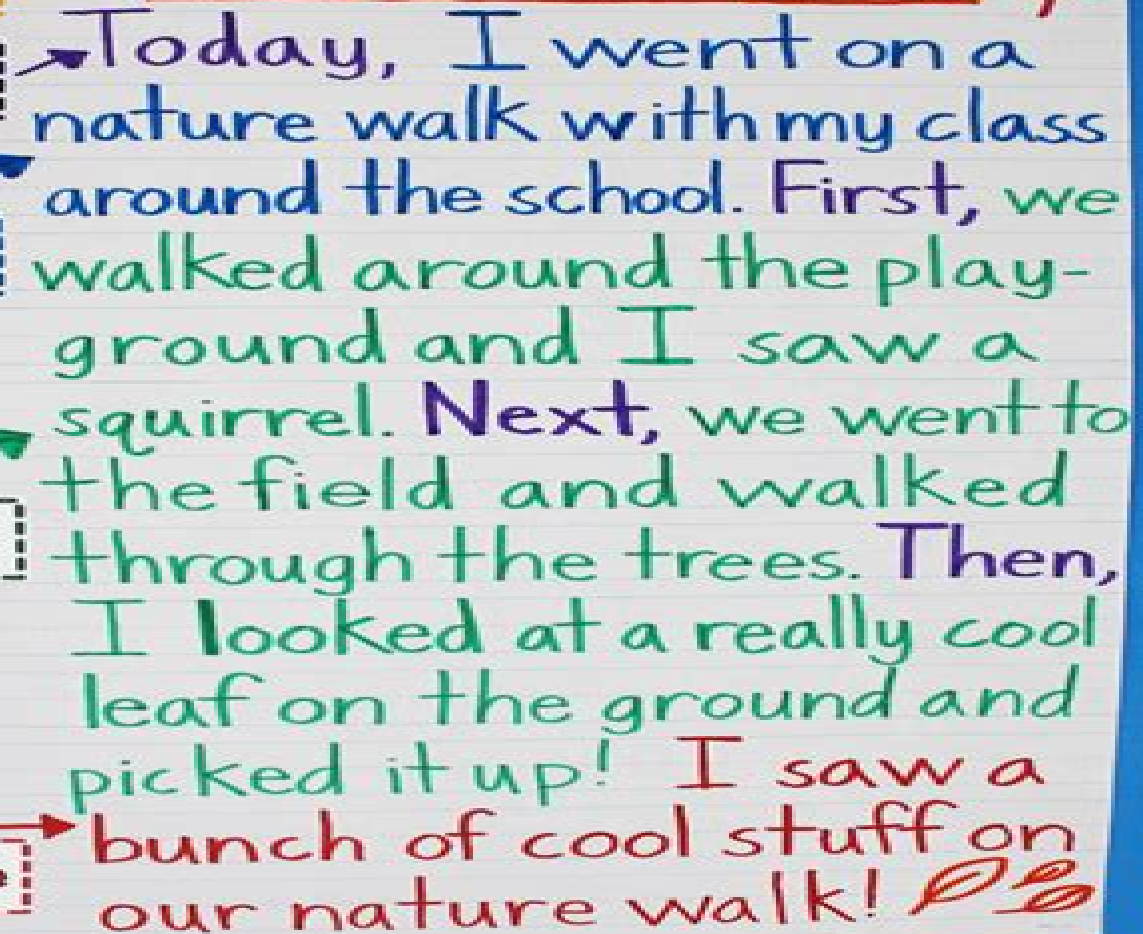 Today, I went on a
nature walk with my class
around the school. First, we
walked around the play-
ground and I saw a
squirrel. Next, we went to
the field and walked
through the trees. Then,
I looked at a really cool
leaf on the ground and
picked it up! I saw a
bunch of cool stuff on
our nature walk!